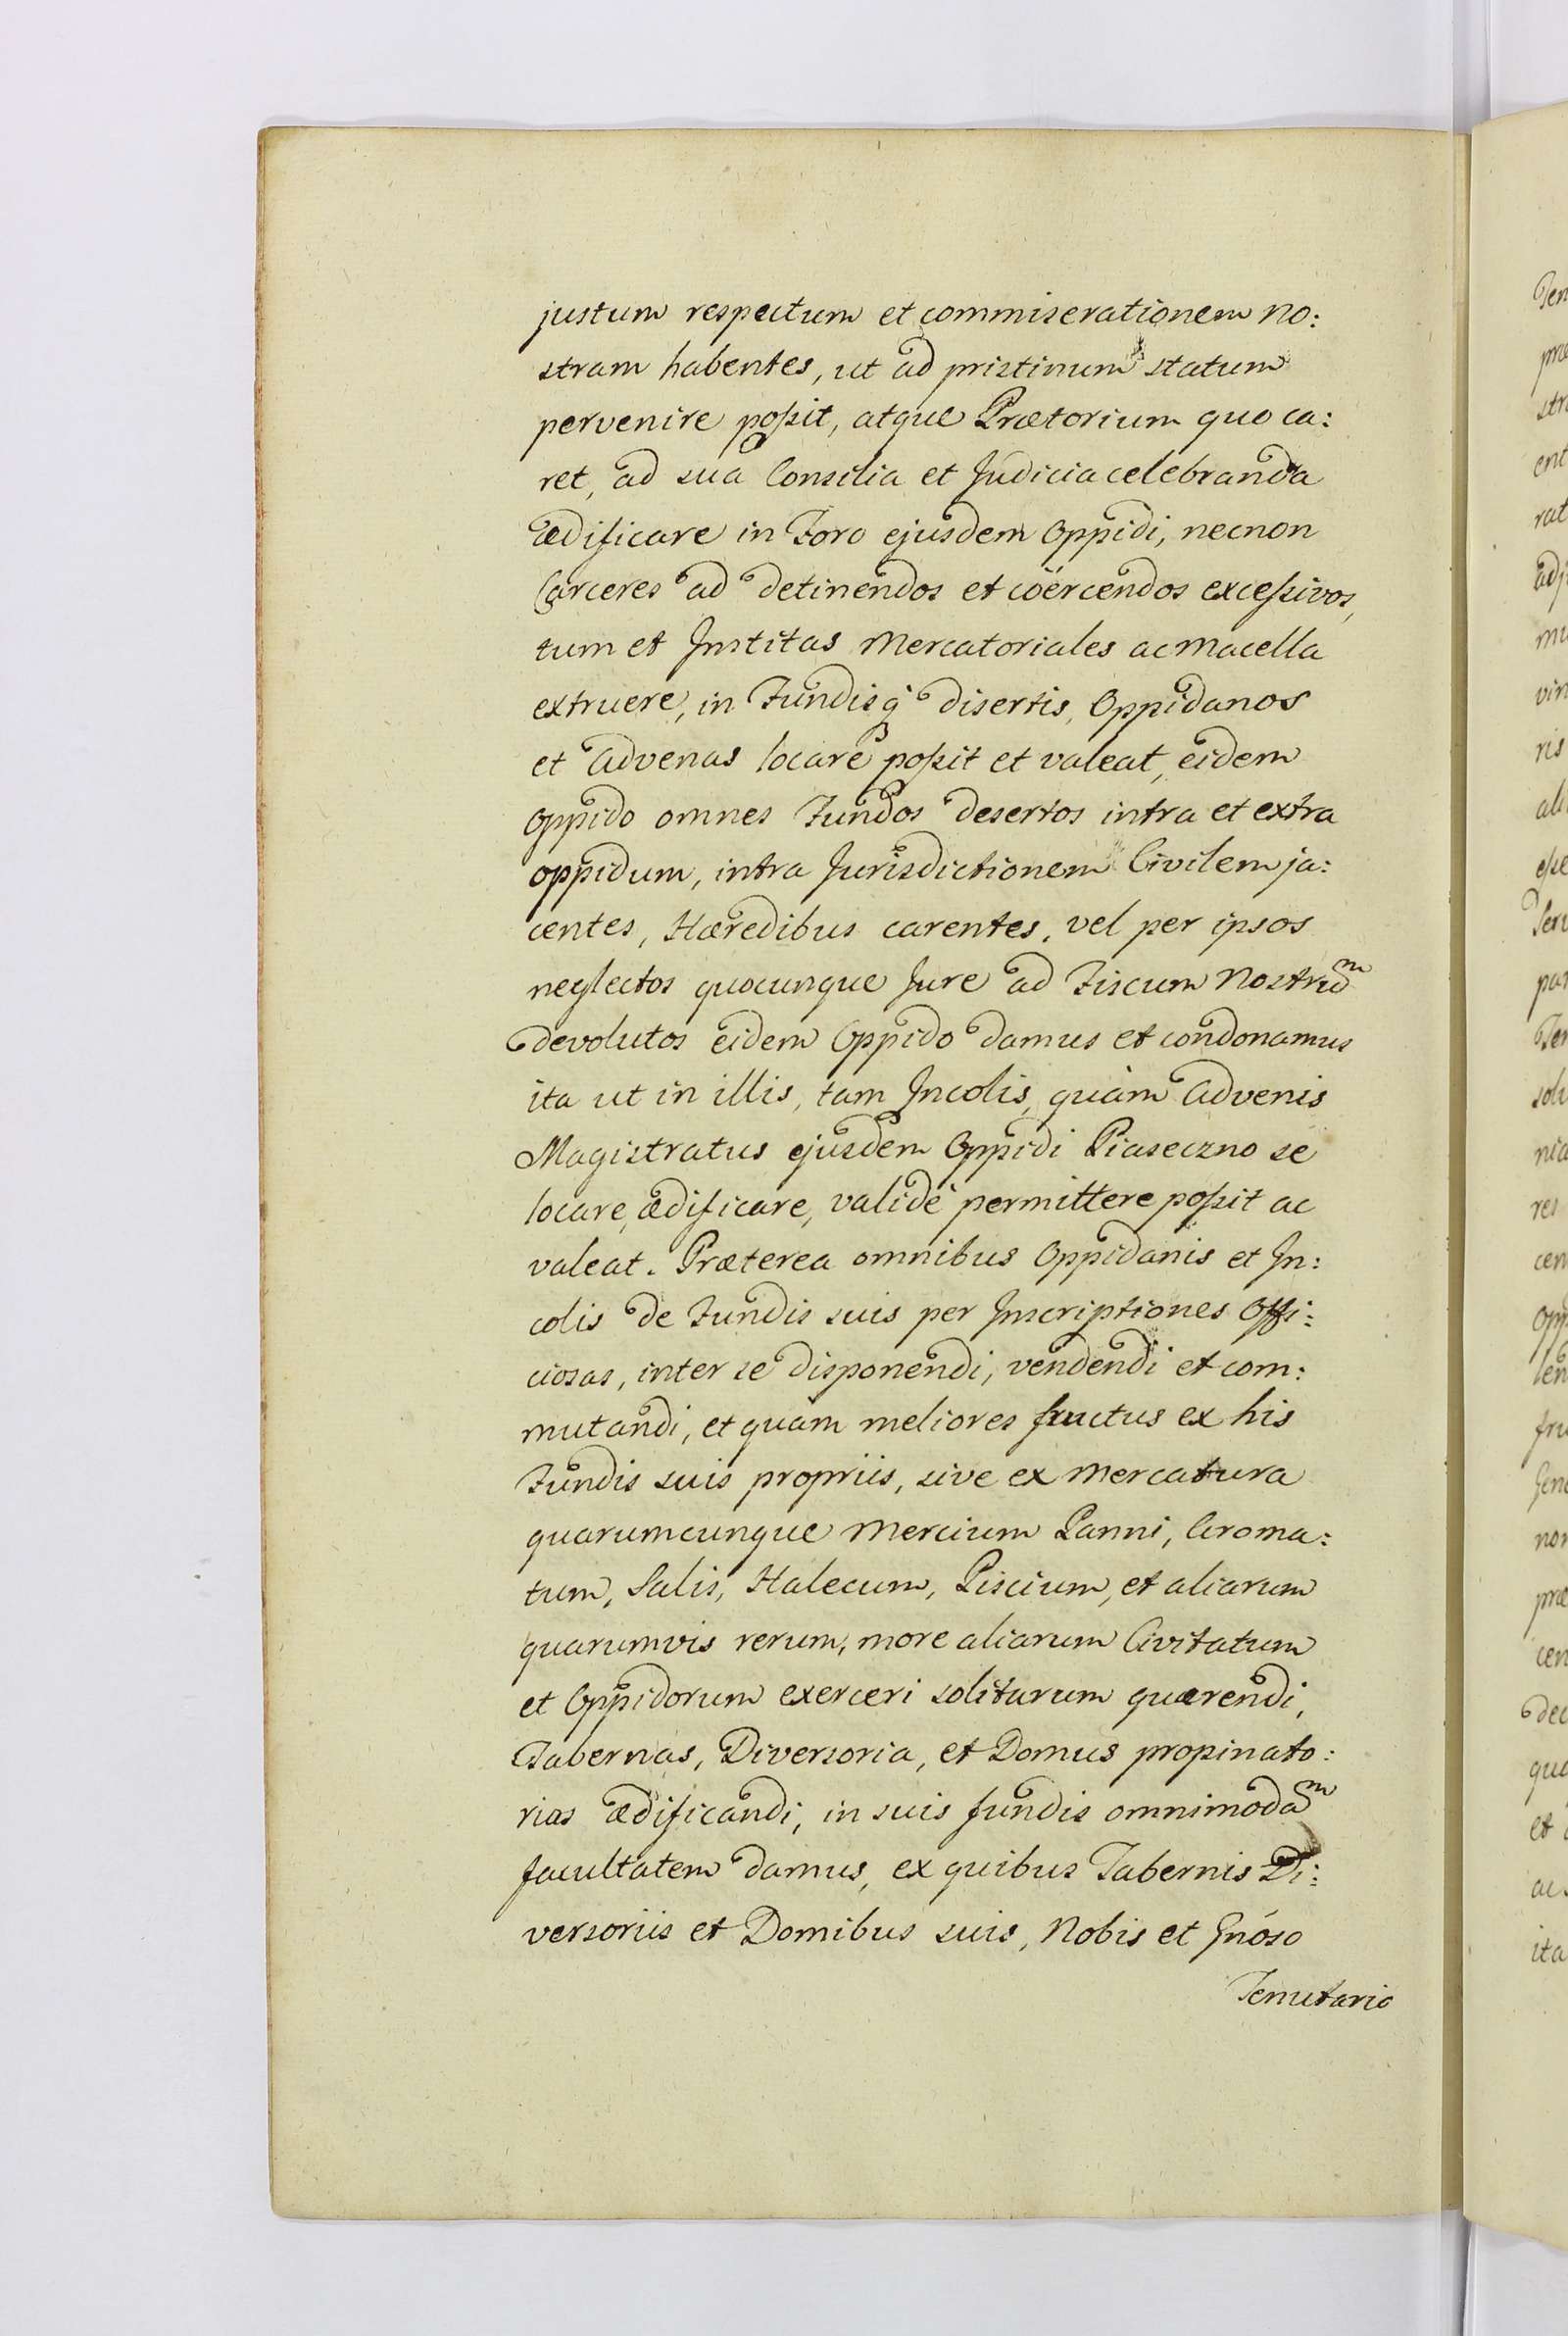 justum respectum et commiserationem no:
stram habentes, ut ad pristinum statum
pervenire poßit, atque Prætorium quo ca:
ret, ad sua Consilia et Judicia celebranda
ædificare in Foro ejusdem Oppidi, necnon
Carceres ad detinendos et coërcendos exceßivos,
tum et Institas Mercatoriales ac Macella
extruere, in Fundisq́ disertis, Oppidanos
et Advenas locare poßit et valeat, eidem
Oppido omnes Fundos desertos intra et extra
oppidum, intra Jurisdictionem Civilem ja:
centes, Hæredibus carentes, vel per ipsos
neglectos quocunque Jure ad Fiscum Nostruᵐ
devolutos eidem Oppido damus et condonamus
ita ut in illis, tam Incolis, quàm Advenis
Magistratus ejusdem Oppidi Piaseczno se
locare, ædificare, validè permittere poßit ac
valeat. Præterea omnibus Oppidanis et In:
colis de Fundis suis per Inscriptiones Offi:
ciosas, inter se disponendi, vendendi et com:
mutandi, et quam meliores fructus ex his
Fundis suis propriis, sive ex Mercatura
quarumcunque Mercium Panni, Aroma:
tum, Salis, Halecum, Piscium, et aliarum
quarumvis rerum, more aliarum Civitatum
et Oppidorum exerceri solitarum quærendi,
Tabernas, Diversoria, et Domus propinato:
rias ædificandi, in suis fundis omnimodaᵐ
facultatem damus, ex quibus Tabernis Di:
versoriis et Domibus suis, Nobis et Gnóso
Tenutario